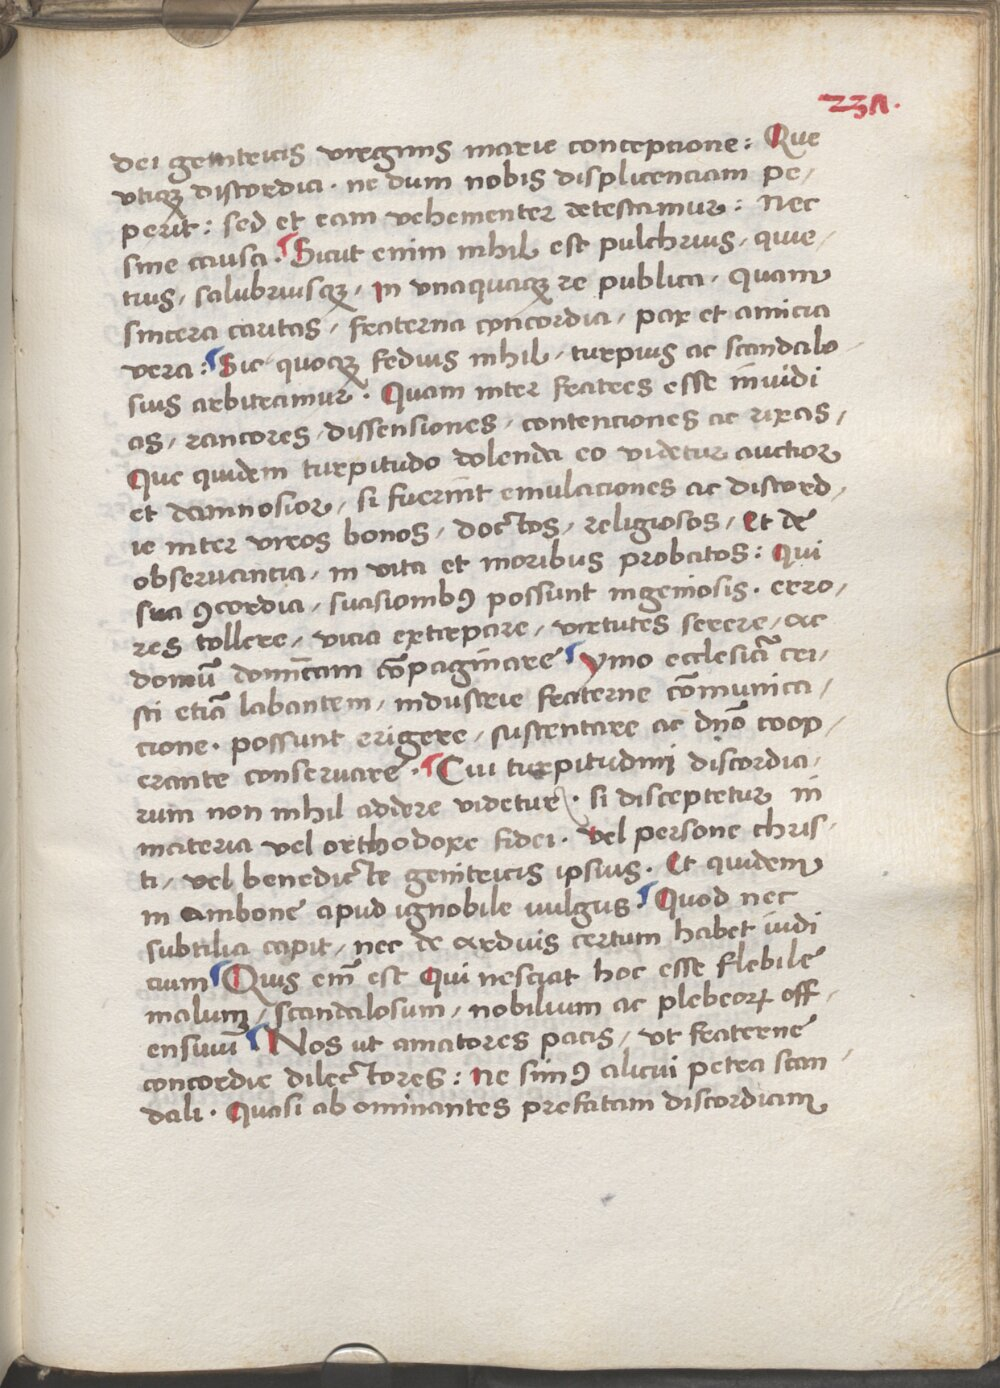 23Λ.
dei genitricis virginis marie conceptione: Que
vtiqꝫ discordia · ne dum nobis displicenciam pe/
perit: sed et eam vehementer detestamur: Nec
sine causa. Sicut enim nihil est pulchrius, quie/
tius, salubriusqꝫ, In vnaquaqꝫ re publica, quam
sincera caritas, fraterna concordia, pax et amicia
vera: Sic quoqꝫ fedius nihil, turpius ac scandalo/
sius arbitramur. Quam inter fratres esse inuidi
as, rancores, dissensiones, contenciones ac rixas,
Que quidem turpitudo dolenda eo videtur auctior
et damnosior, si fuerint emulaciones ac discord/
ie inter viros bonos, doctos, religiosos, Et de
obseruancia, in vita et moribus probatos: Qui
sua ꝯcordia, suasionibꝯ possunt ingeniosis. erro/
res tollere, vicia extirpare, virtutes serere, ac
domū domīcam cōpaginare ymo ecclesiā cri/
sti etiā labantem, industrie fraterne cōmunica/
cione. possunt erigere, sustentare ac dn̄o coop/
erante conseruare. Cui turpitudini discordia/
rum non nihil addere videtur. si disceptetur in
materia vel orthodoxe fidei. Vel persone chris/
ti, vel benedicte genitricis ipsius. Et quidem
in ambone apud ignobile uulgus. Quod nec
subtilia capit, nec de arduis certum habet iudi
cium Quis em̄ est Qui nesciat hoc esse flebile
malum, scandalosum, nobilium ac plebeoꝝ off/
ensiuū Nos ut amatores pacis, ut fraterne
concordie dilectores: Ne simꝯ alicui petra scan/
dali. Quasi abominantes prefatam discordiam